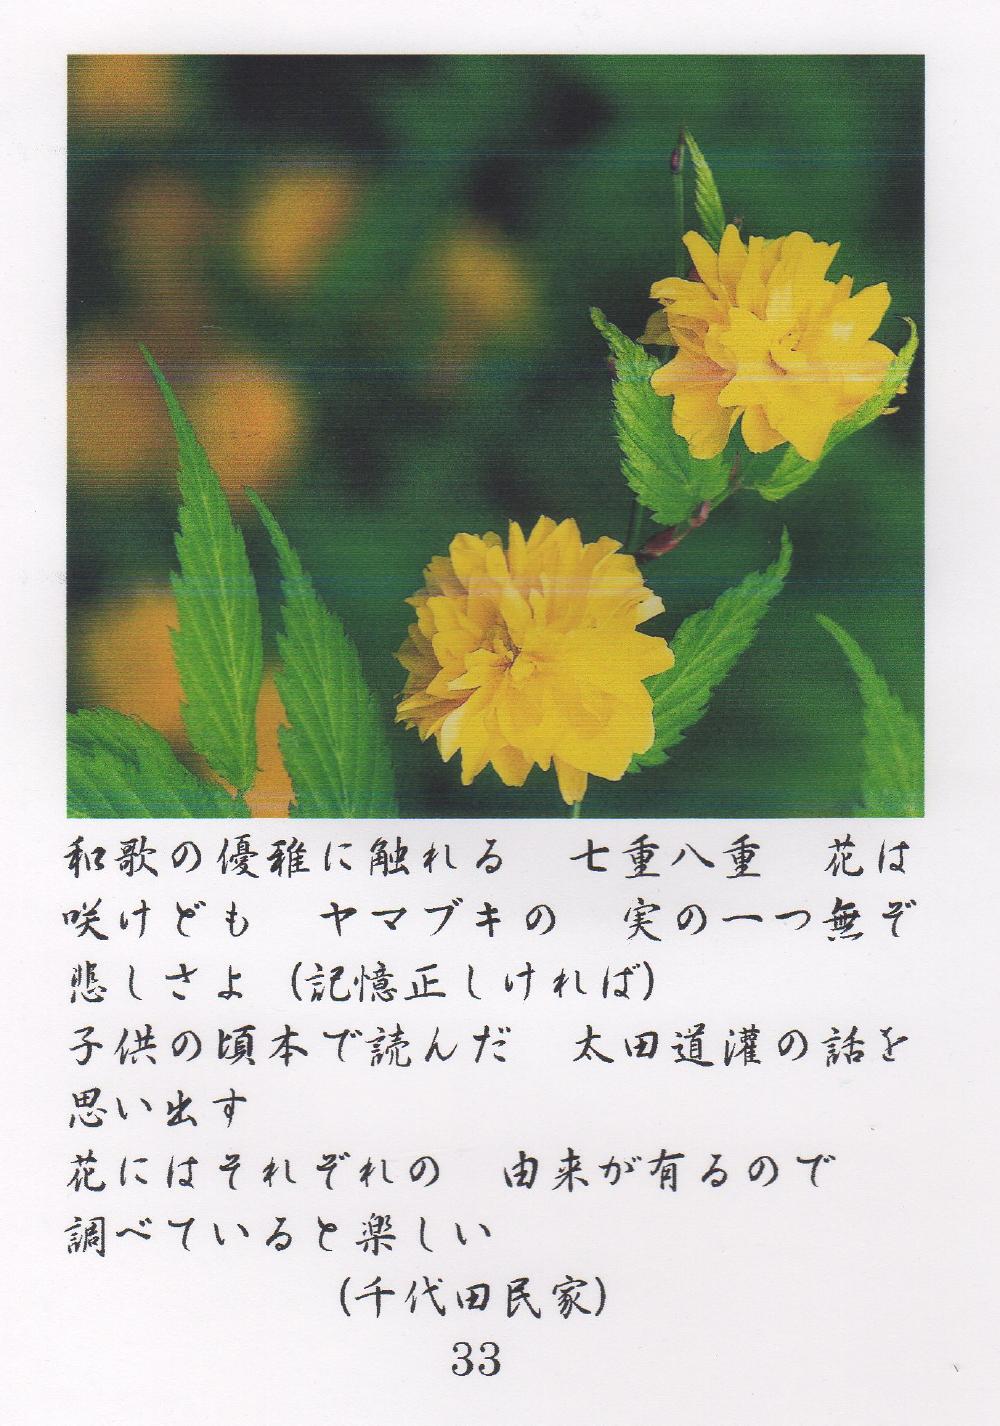 和歌の優雅に触れる　七重八重　花は
咲けども　ヤマブキの　実の一つ無ぞ
悲しさよ（記憶正しければ）
子供の頃本で読んだ　太田道灌の話を
思い出す
花にはそれぞれの　由来が有るので
調べていると楽しい
（千代田民家）
33